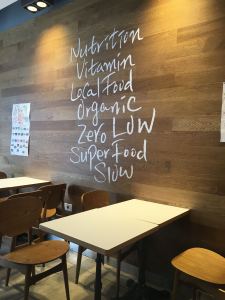 Nutrition
Vitamin
Local Food
Organic
Zero Low
Super Food
Slow